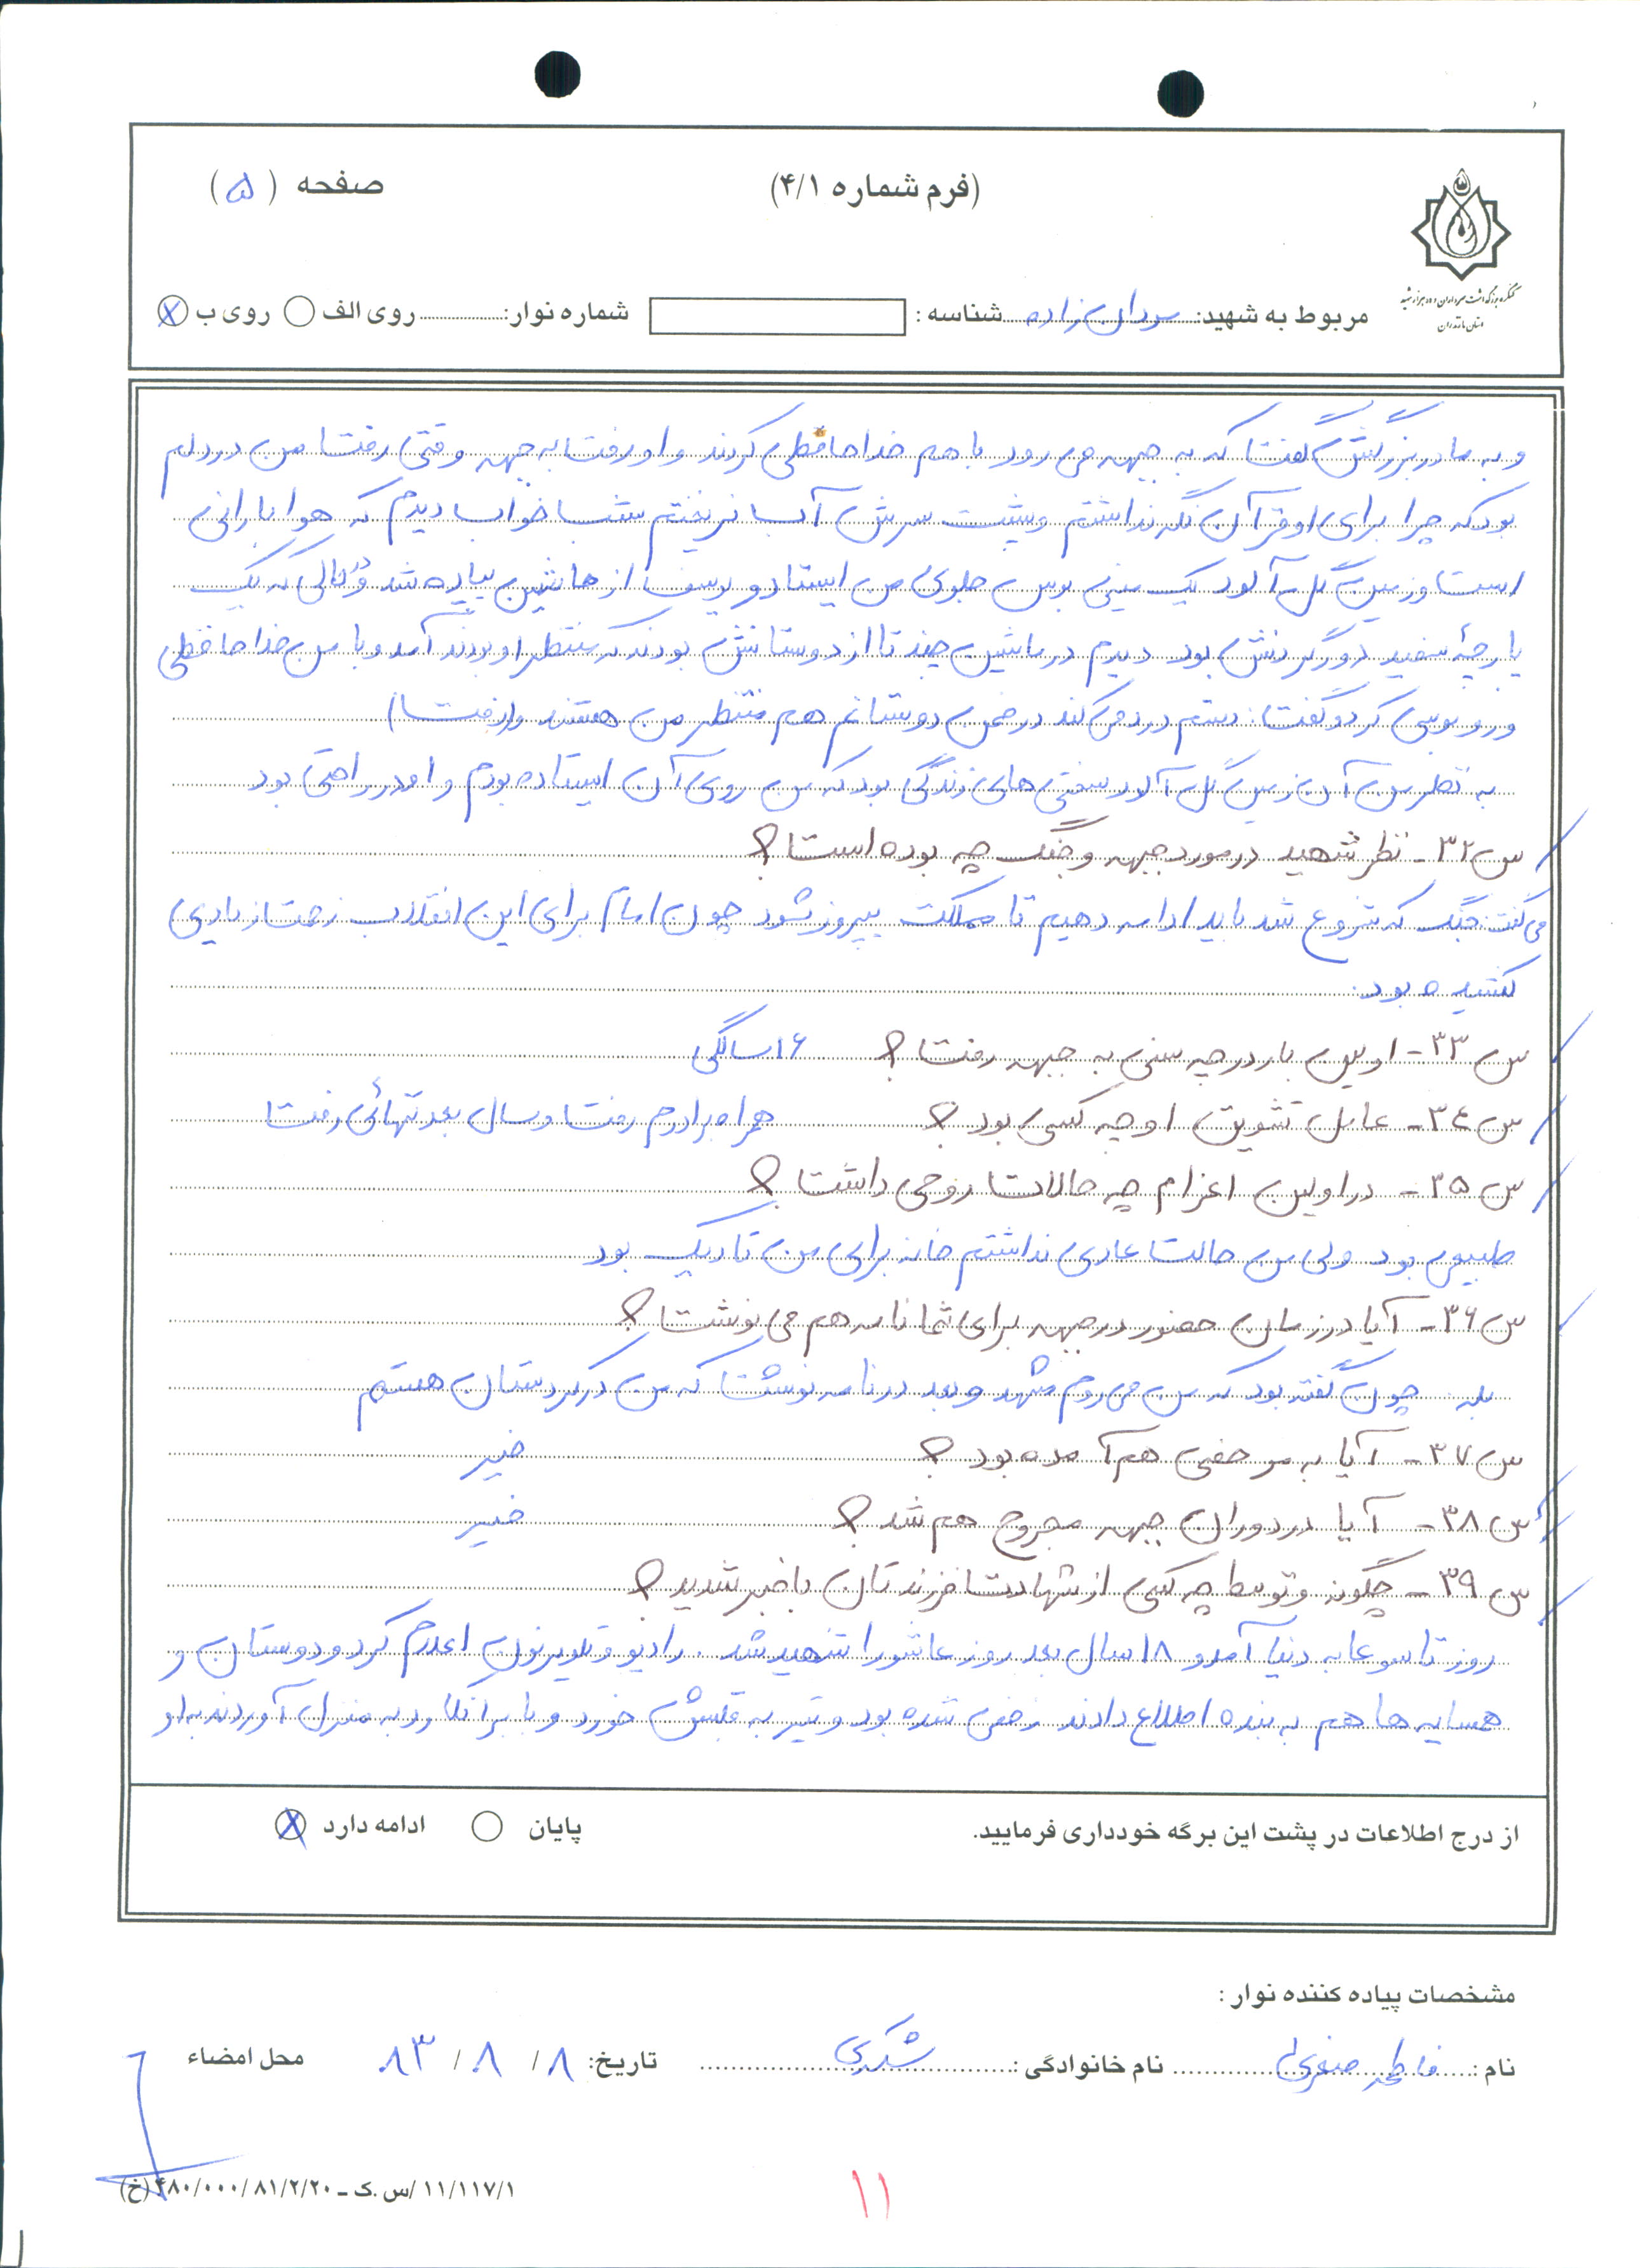 (فرم شماره ۴/۱)
صفحه (۵)
کنگره بزرگداشت سرداران و ده هزار شهید
استان مازندران
مربوط به شهید: سردار زاده شناسه : شماره نوار: روی الف روی ب
و به مادربزرگش گفت که به جبهه می رود با هم خداحافظی کردند و او رفت به جبهه وقتی رفت من در دلم
بود که چرا برای او قرآن نگه نداشتم و پشت سرش آب نریختم شب خواب دیدم که هوا بارانی
است و زمین گل آلود یک مینی بوس جلوی من ایستاد و یوسف از ماشین پیاده شد در حالی که یک
پارچهٔ سفید دور گردنش بود دیدم در ماشین چند تا از دوستانش بودند که منتظر او بودند آمد و با من خداحافظی
و روبوسی کرد و گفت: دستم درد می کند در ضمن دوستانم هم منتظر من هستند و (رفت)
به نظر من آن زمین گل آلود سختی های زندگی بود که من روی آن ایستاده بودم و او در راحتی بود
س۳۲- نظر شهید در مورد جبهه و جنگ چه بوده است؟
می گفت: جنگ که شروع شد باید ادامه دهیم تا مملکت پیروز شود چون امام برای این انقلاب زحمت زیادی
کشیده بود.
س۳۳- اولین بار در چه سنی به جبهه رفت؟ ۱۶ سالگی
س۳۴- عامل تشویق او چه کسی بود؟ همراه برادرم رفت و سال بعد تنهائی رفت
س۳۵- در اولین اعزام چه حالات روحی داشت؟
طبیعی بود ولی من حالت عادی نداشتم خانه برای من تاریک بود
س۳۶- آیا در زمان حضور در جبهه برای شما نامه هم می نوشت؟
بله چون گفته بود که من می روم مشهد و بعد در نامه نوشت که من در کردستان هستم
س۳۷- آیا به مرخصی هم آمده بود؟ خیر
س۳۸- آیا در دوران جبهه مجروح هم شد؟ خیر
س۳۹- چگونه و توسط چه کسی از شهادت فرزندتان باخبر شدید؟
روز تاسوعا به دنیا آمد و ۱۸ سال بعد روز عاشورا شهید شد. رادیو و تلویزیون اعلام کرد و دوستان و
همسایه ها هم به بنده اطلاع دادند زخمی شده بود و تیر به قلبش خورد و با برانکارد به منزل آوردند به او
از درج اطلاعات در پشت این برگه خودداری فرمایید.
پایان ادامه دارد
مشخصات پیاده کننده نوار :
نام : فاطمه نام خانوادگی : تاریخ: ۸ / ۸ / ۸۳ محل امضاء
۱۱/۱۱۷/۱ /س.ک ـ ۴۸۰/۰۰۰/۸۱/۲/۲۰ (خ)
۱۱